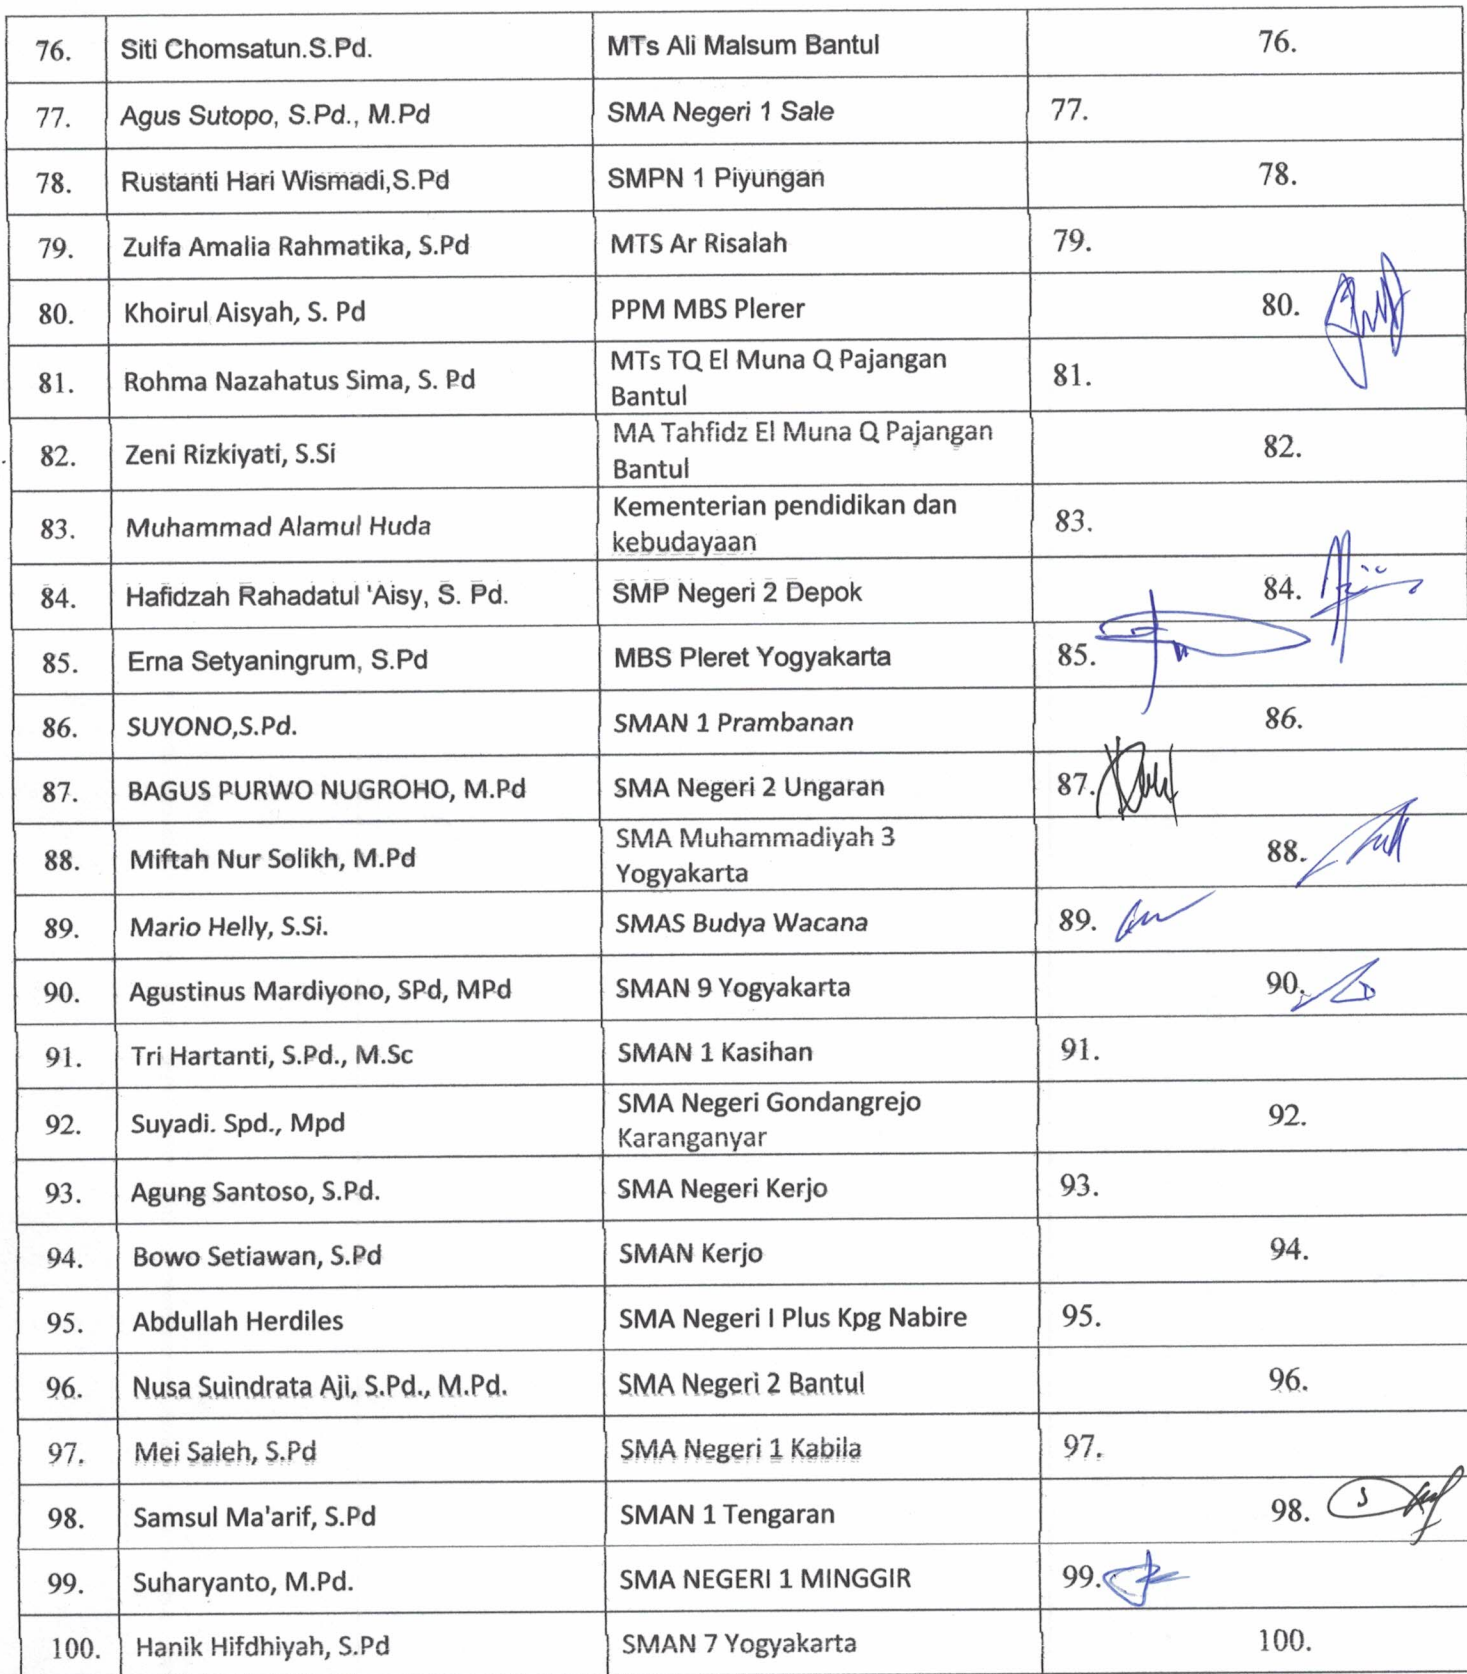 76. Siti Chomsatun.S.Pd. MTs Ali Malsum Bantul 76.
77. Agus Sutopo, S.Pd., M.Pd SMA Negeri 1 Sale 77.
78. Rustanti Hari Wismadi,S.Pd SMPN 1 Piyungan 78.
79. Zulfa Amalia Rahmatika, S.Pd MTS Ar Risalah 79.
80. Khoirul Aisyah, S. Pd PPM MBS Plerer 80.
81. Rohma Nazahatus Sima, S. Pd MTs TQ El Muna Q Pajangan
Bantul 81.
82. Zeni Rizkiyati, S.Si MA Tahfidz El Muna Q Pajangan
Bantul 82.
83. Muhammad Alamul Huda Kementerian pendidikan dan
kebudayaan 83.
84. Hafidzah Rahadatul 'Aisy, S. Pd. SMP Negeri 2 Depok 84.
85. Erna Setyaningrum, S.Pd MBS Pleret Yogyakarta 85.
86. SUYONO,S.Pd. SMAN 1 Prambanan 86.
87. BAGUS PURWO NUGROHO, M.Pd SMA Negeri 2 Ungaran 87.
88. Miftah Nur Solikh, M.Pd SMA Muhammadiyah 3
Yogyakarta 88.
89. Mario Helly, S.Si. SMAS Budya Wacana 89.
90. Agustinus Mardiyono, SPd, MPd SMAN 9 Yogyakarta 90.
91. Tri Hartanti, S.Pd., M.Sc SMAN 1 Kasihan 91.
92. Suyadi. Spd., Mpd SMA Negeri Gondangrejo
Karanganyar 92.
93. Agung Santoso, S.Pd. SMA Negeri Kerjo 93.
94. Bowo Setiawan, S.Pd SMAN Kerjo 94.
95. Abdullah Herdiles SMA Negeri I Plus Kpg Nabire 95.
96. Nusa Suindrata Aji, S.Pd., M.Pd. SMA Negeri 2 Bantul 96.
97. Mei Saleh, S.Pd SMA Negeri 1 Kabila 97.
98. Samsul Ma'arif, S.Pd SMAN 1 Tengaran 98.
99. Suharyanto, M.Pd. SMA NEGERI 1 MINGGIR 99.
100. Hanik Hifdhiyah, S.Pd SMAN 7 Yogyakarta 100.